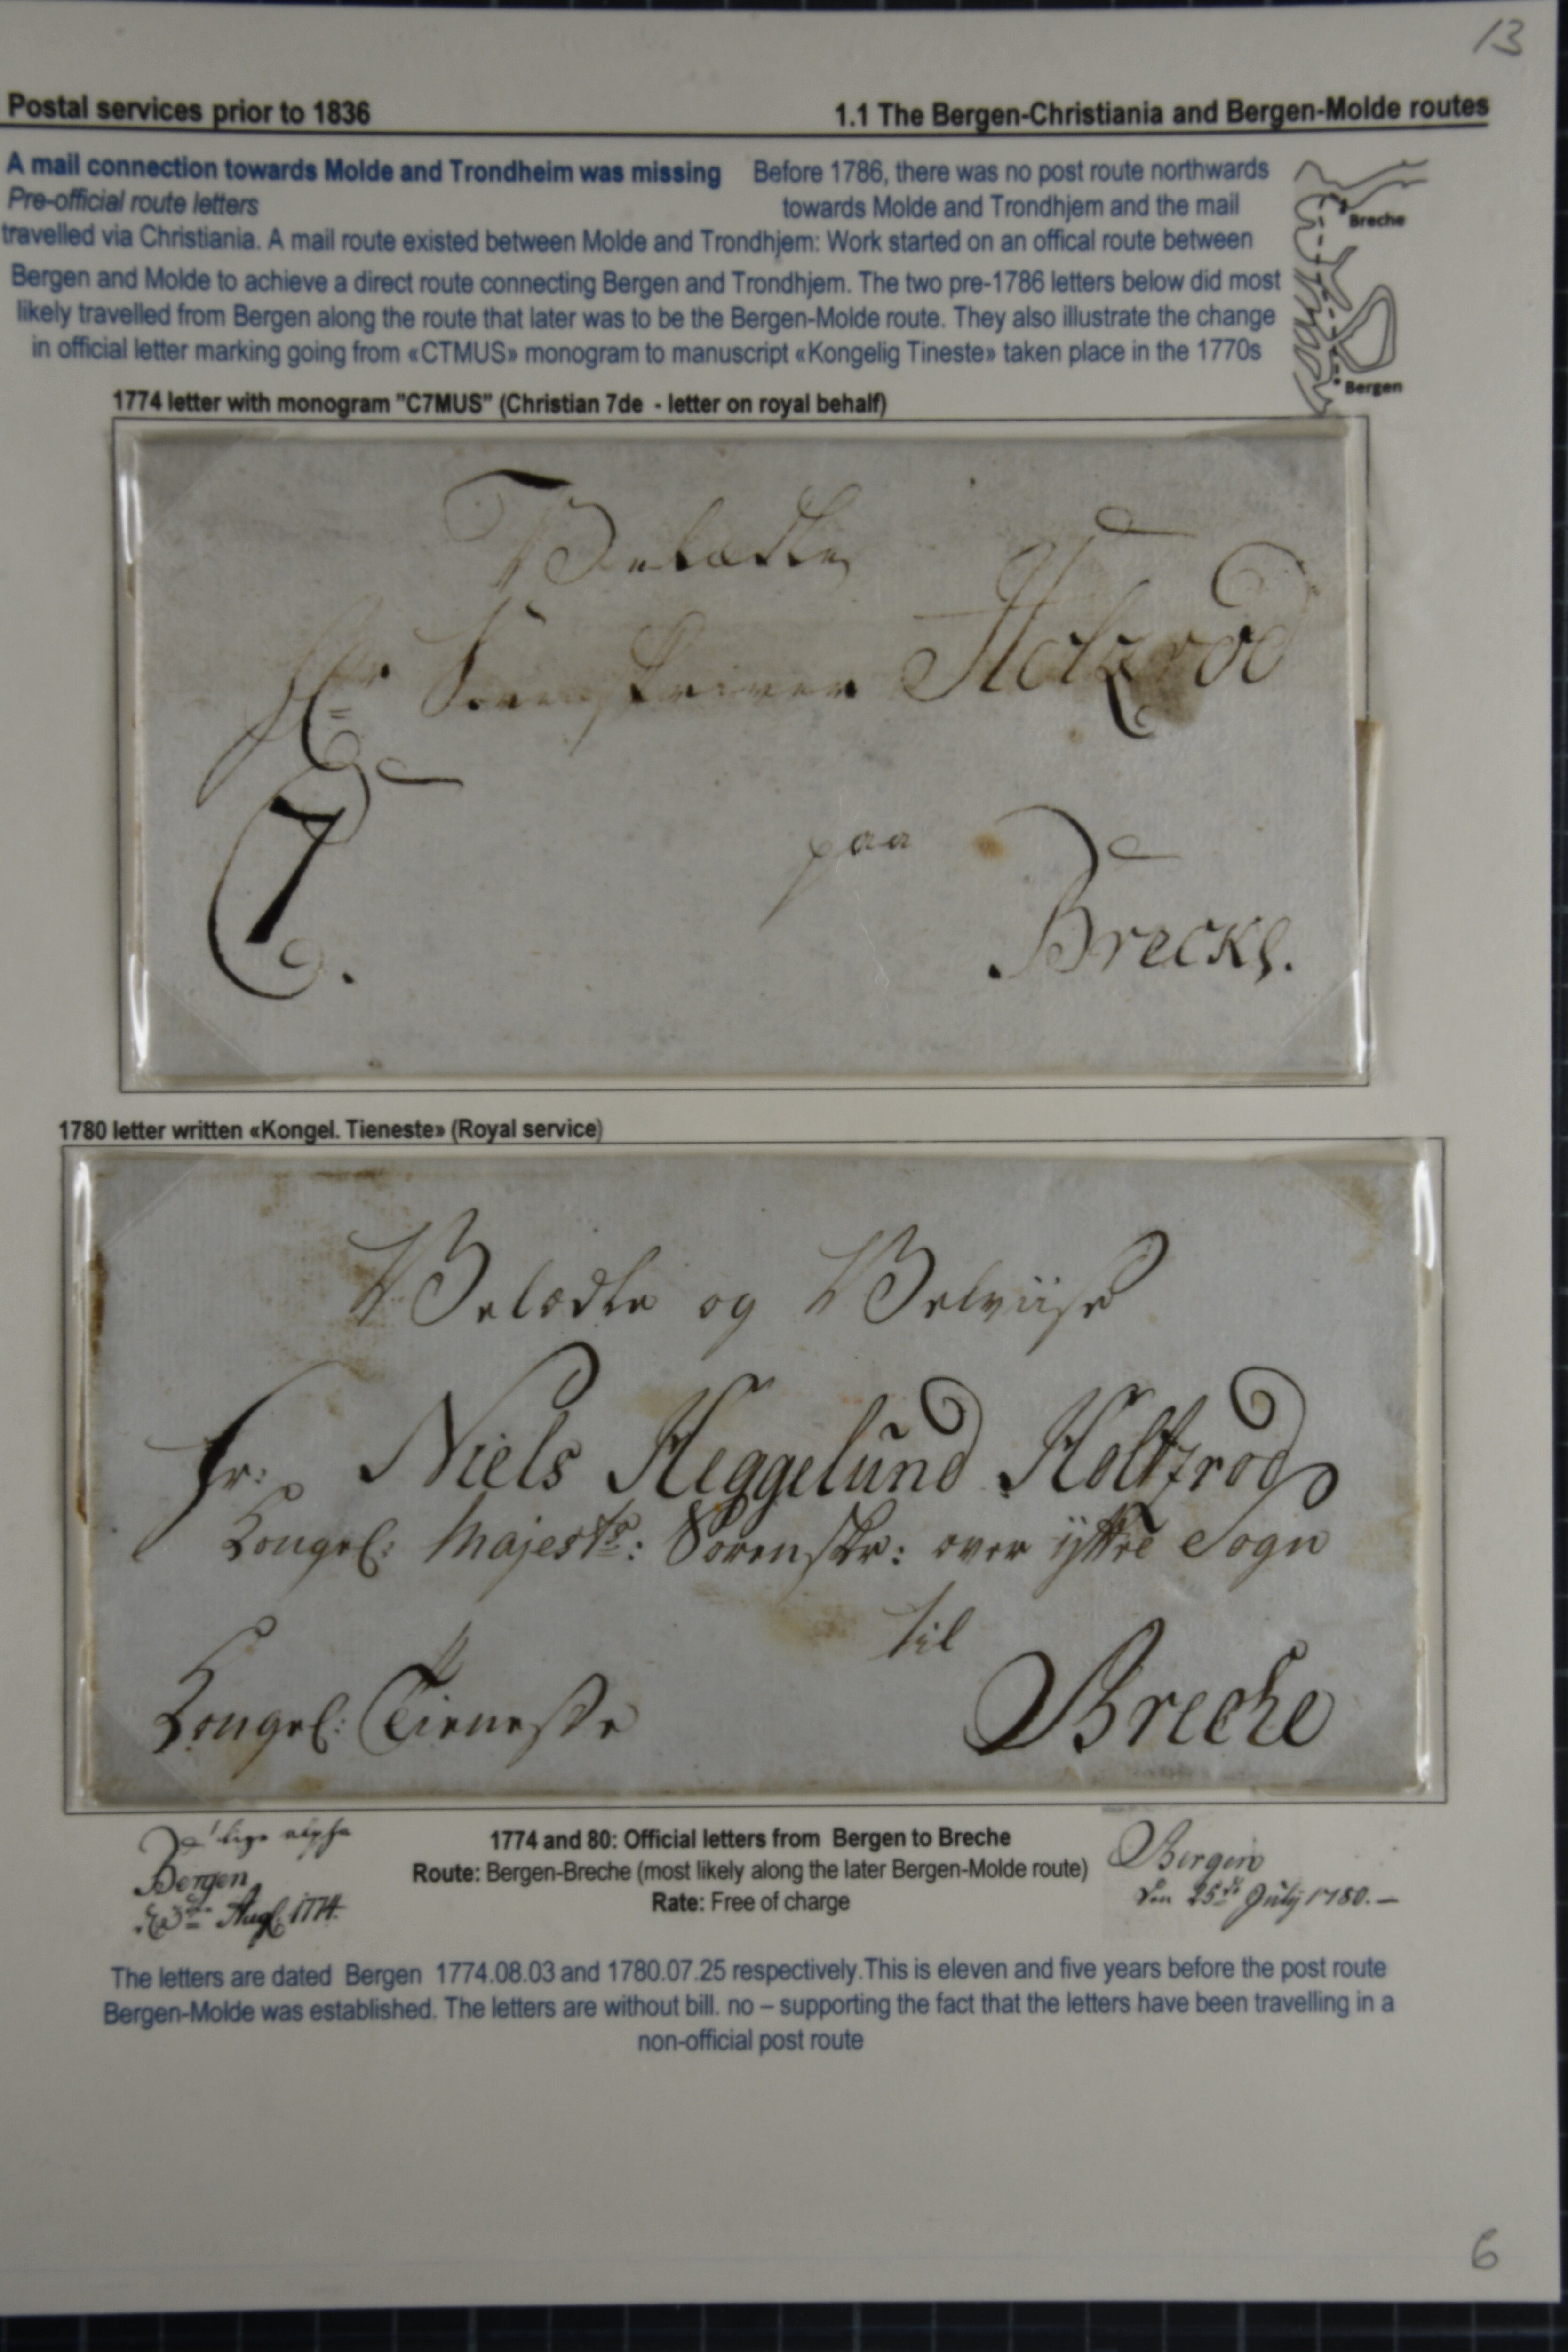 13
Postal services prior to 1836 1.1 The Bergen-Christiania and Bergen-Molde routes
A mail connection towards Molde and Trondheim was missing Before 1786, there was no post route northwards
Pre-official route letters towards Molde and Trondhjem and the mail
travelled via Christiania. A mail route existed between Molde and Trondhjem: Work started on an offical route between
Bergen and Molde to achieve a direct route connecting Bergen and Trondhjem. The two pre-1786 letters below did most
likely travelled from Bergen along the route that later was to be the Bergen-Molde route. They also illustrate the change
in official letter marking going from «CTMUS» monogram to manuscript «Kongelig Tineste» taken place in the 1770s
Breche
Bergen
1774 letter with monogram "C7MUS" (Christian 7de - letter on royal behalf)
Velædle
Hr Sorenskriver Holtzrod
C7
paa
Brecke.
1780 letter written «Kongel. Tieneste» (Royal service)
Velædle og Velviise
Hr: Niels Heggelund Holtzrod
Kongel: Majests: Sorenskr: over ÿttre Sogn
til
Kongel: Tieneste Breche
Bergen
d 3 Aug. 1774.
1774 and 80: Official letters from Bergen to Breche
Route: Bergen-Breche (most likely along the later Bergen-Molde route)
Rate: Free of charge
Bergen
den 25de Julÿ 1780.—
The letters are dated Bergen 1774.08.03 and 1780.07.25 respectively.This is eleven and five years before the post route
Bergen-Molde was established. The letters are without bill. no – supporting the fact that the letters have been travelling in a
non-official post route
6